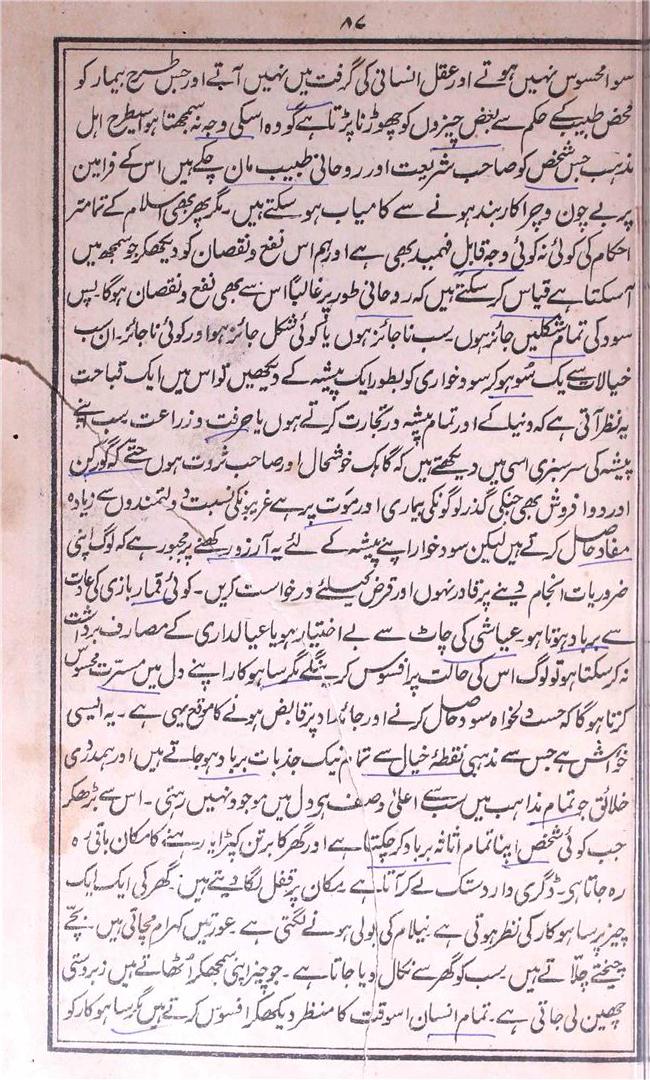 ۸۷
سوا محسوس نہیں ہوتے اور عقل انسانی کی گرفت میں نہیں آتے اور جس طرح بیمار کو
محض طبیب کے حکم سے بعض چیزوں کو چھوڑنا پڑتا ہے گو وہ اسکی وجہ نہ سمجھتا ہو اسیطرح اہل
مذہب جس شخص کو صاحب شریعت اور روحانی طبیب مان چکے ہیں اس کے فرامین
پر بے چون وچرا کاربند ہونے سے کامیاب ہو سکتے ہیں۔ مگر پھر بھی اسلام کے تمامتر
احکام کی کوئی نہ کوئی وجہ قابل فہمید بھی ہے اور ہم اس نفع ونقصان کو دیکھکر جو سمجھ میں
آسکتا ہے قیاس کر سکتے ہیں کہ روحانی طور پر غالباً اس سے بھی نفع ونقصان ہوگا۔ پس
سود کی تمام شکلیں جائز ہوں یا سب ناجائز ہوں یا کوئی شکل جائز ہو اور کوئی ناجائز۔ ان سب
خیالات سے یک سو ہو کر سود خواری کو بطور ایک پیشہ کے دیکھیں تو اس میں ایک قباحت
یہ نظر آتی ہے کہ دنیا کے اور تمام پیشہ ور تجارت کرتے ہوں یا حرفت وزراعت سب اپنے
پیشہ کی سرسبزی اسی میں دیکھتے ہیں کہ گاہک خوشحال اور صاحب ثروت ہوں حتے کہ گورکن
اور دوا فروش بھی جنکی گذر لوگونکی بیماری اور موت پر ہے غریبونکی نسبت دولتمندوں سے زیادہ
مفاد حاصل کرتے ہیں لیکن سود خوار اپنے پیشہ کے لئے یہ آرزو رکھنے پر مجبور ہے کہ لوگ اپنی
ضروریات انجام دینے پر قادر نہوں اور قرض کیلئے درخواست کریں۔ کوئی قمار بازی کی عادت
سے برباد ہوتا ہو۔ عیاشی کی چاٹ سے بے اختیار ہو یا عیالداری کے مصارف برداشت
نہ کر سکتا ہو تو لوگ اس کی حالت پر افسوس کرینگے مگر ساہوکار اپنے دل میں مسرت محسوس
کرتا ہوگا کہ حسب دلخواہ سود حاصل کرنے اور جائداد پر قابض ہونے کا موقع یہی ہے۔ یہ ایسی
خواہش ہے جس سے مذہبی نقطۂ خیال سے تمام نیک جذبات برباد ہو جاتے ہیں اور ہمدردی
خلائق جو تمام مذاہب میں سب سے اعلیٰ وصف ہی دل میں موجود نہیں رہتی۔ اس سے بڑھکر
جب کوئی شخص اپنا تمام اثاثہ برباد کر چکتا ہے اور گھر کا برتن کپڑا اور رہنے کا مکان باقی
رہ جاتا ہی۔ ڈگری دار دستک لے کر آتا ہے مکان پر قفل لگا دیتے ہیں۔ گھر کی ایک ایک
چیز پر ساہوکار کی نظر ہوتی ہے نیلام کی بولی ہونے لگتی ہے عورتیں کہرام مچاتی ہیں۔ بچے
چیختے چلاتے ہیں سب کو گھر سے نکال دیا جاتا ہے۔ جو چیز اپنی سمجھکر اٹھاتے ہیں زبردستی
چھین لی جاتی ہے۔ تمام انسان اسوقت کا منظر دیکھکر افسوس کرتے ہیں مگر ساہوکار کو